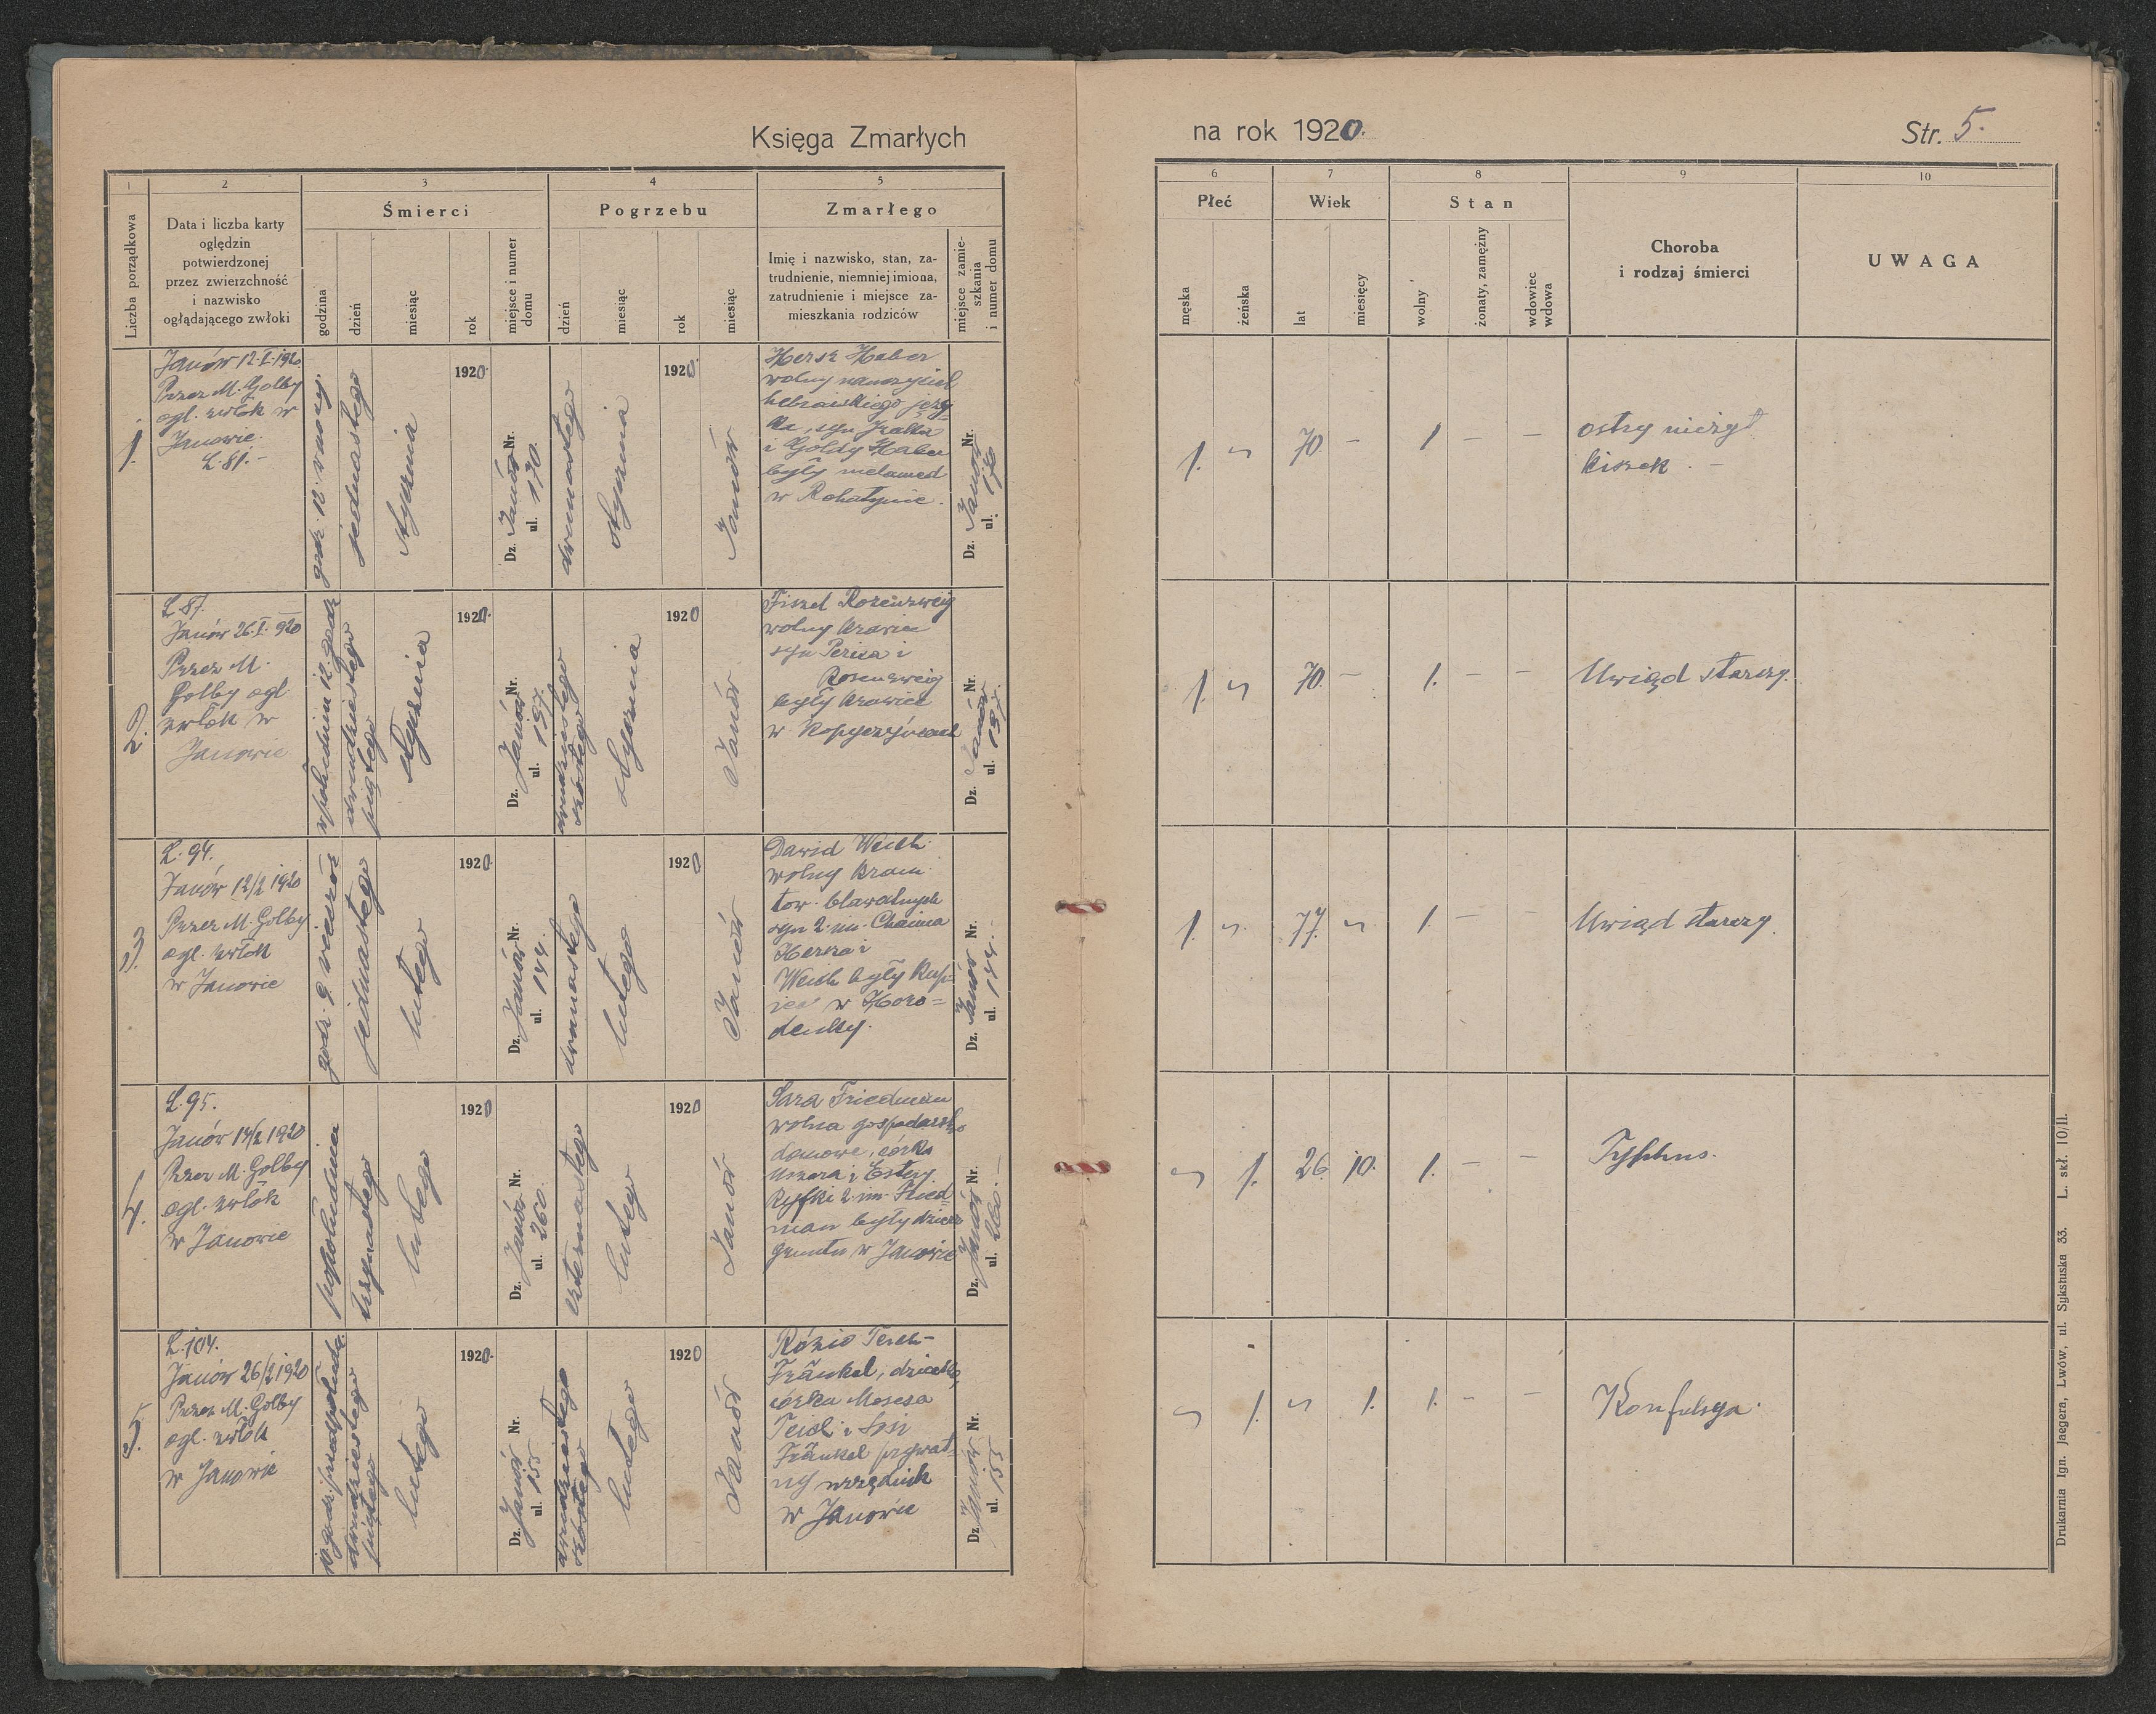 Księga Zmarłych
na rok 1920.
Str. 5.
1
2
3
4
5
6
7
8
9
10
Liczba porządkowa
Data i liczba karty
oględzin
potwierdzonej
przez zwierzchność
i nazwisko
oglądającego zwłoki
Śmierci
godzina
dzień
miesiąc
rok
miejsce i numer
domu
Pogrzebu
dzień
miesiąc
rok
miesiąc
Zmarłego
Imię i nazwisko, stan, za-
trudnienie, niemniej imiona,
zatrudnienie i miejsce za-
mieszkania rodziców
miejsce zamie-
szkania
i numer domu
Płeć
męska
żeńska
Wiek
lat
miesięcy
Stan
wolny
żonaty, zamężny
wdowiec
wdowa
Choroba
i rodzaj śmierci
UWAGA
1.
Janów 12.I.1920
Przez M. Golby
ogl. zwłok w
Janowie.
L. 81.-
godz. 12. w nocy.
jednastego
stycznia
1920.
Dz. Janów Nr.
ul. 170.
dwunastego
stycznia
1920
Janów
Hersz Haber
wolny nauczyciel
hebrajskiego języ
ka, syn
i Goldy Haber
były melamed
w Rohatynie.
Dz. Janów Nr.
ul. 170
1.
70.
-
1
-
-
ostry nieżyt
kiszek. -
2.
L. 87.
Janów 26.I.920
Przez M.
Golby ogl.
zwłok w
Janowie
w południe 12. godz
dwudziestego
piątego
stycznia
1920.
Dz. Janów Nr.
ul. 157.
dwudziestego
szóstego
stycznia
1920
Janów
Fiszel Rozenzweig
wolny krawiec
syn i
Rosenzweig
były krawiec
w Kopyczyńcach
Dz. Janów Nr.
ul. 157.
1.
70.
-
1.
-
-
Uwiąd starczy.
3.
L. 94.
Janów 12/2 1920
Przez M. Golby
ogl. zwłok
w Janowie
godz. 9. wieczór
jednastego
lutego
1920.
Dz. Janów Nr.
ul. 144.
dwunastego
lutego
1920
Janów
Dawid Weich
wolny kram.
tow. bławatnych
syn 2. im. Chaima
Hersza i
Weich były kup-
iec w Horo=
denky.
Dz. Janów Nr.
ul. 144.-
1.
77.
1.
-
-
Uwiąd starczy.
4.
L. 95.
Janów 14/2 1920
Przez M. Golby
ogl. zwłok
w Janowie
popołudniu
trzynastego
lutego
1920
Dz. Janów Nr.
ul. 260.
czternastego
lutego
1920
Janów
Sara Friedman
wolna gospodarstwo
domowe, córka
Uszera i Estery
Ryfki 2. im. Fried
man były dzierż
gruntu w Janowie
Dz. Janów Nr.
ul. 260.-
1.
26.
10.
1.
-
-
Typhus.
5.
L. 104.
Janów 26/2 1920
Przez M. Golby
ogl. zwłok
w Janowie
10. godz. przedpołudn.
dwudziestego
piątego
lutego
1920.
Dz. Janów Nr.
ul. 155
dwudziestego
szóstego
lutego
1920
Janów
Rózio
Fränkel, dziecko,
córka Mosesa
Teich i
Fränkel prywat-
ny urzędnik
w Janowie
Dz. Janów Nr.
ul. 155
1.
1.
1.
-
-
Konfulsya.
Drukarnia Ign. Jaegera, Lwów, ul. Sykstuska 33. L. skł. 10/II.